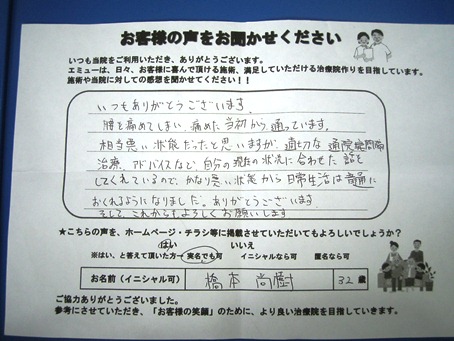 お客様の声をお聞かせください
いつも当院をご利用いただき、ありがとうございます。
エミューは、日々、お客様に喜んで頂ける施術、満足していただける治療院作りを目指しています。
施術や当院に対しての感想をお聞かせください！！
いつもありがとうございます。
腰を痛めてしまい、痛めた当初から通っています。
相当悪い状態だったと思いますが、適切な通院期間隔
治療、アドバイスなど、自分の現在の状況に合わせた話を
してくれているので、かなり悪い状態から日常生活は普通に
おくれるようになりました。ありがとうございます
そして、これからもよろしくお願いします
★こちらの声を、ホームページ・チラシ等に掲載させていただいてもよろしいでしょうか？
はい いいえ
※はい、と答えて頂いた方→ 実名でも可 イニシャルなら可 匿名なら可
お名前（イニシャル可） 橋本 尚樹 32 歳
ご協力ありがとうございました。
参考にさせていただき、「お客様の笑顔」のために、より良い治療院を目指していきます。